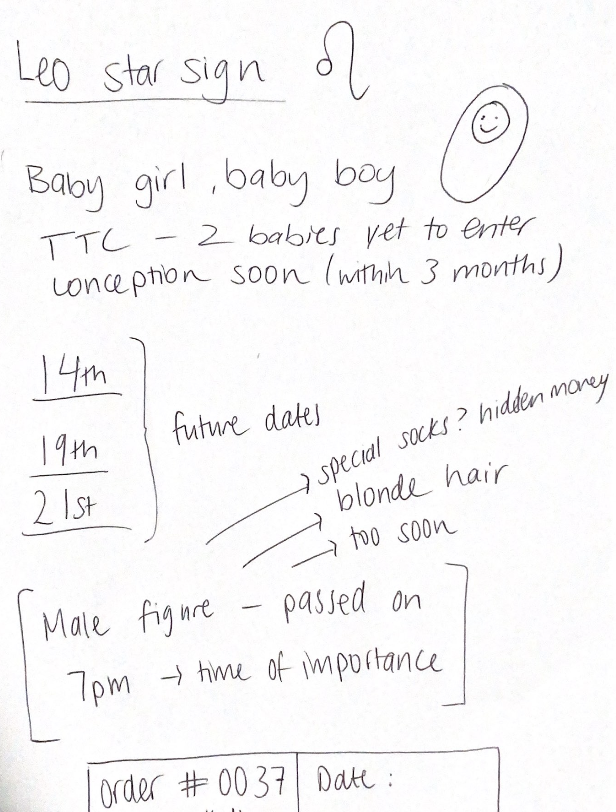 Leo star sign ♌
Baby girl, baby boy
TTC - 2 babies yet to enter
conception soon (within 3 months)
14th
19th
21st
future dates
→ special socks? hidden money
→ blonde hair
→ too soon
Male figure - passed on
7pm → time of importance
Order # 0037
Date: